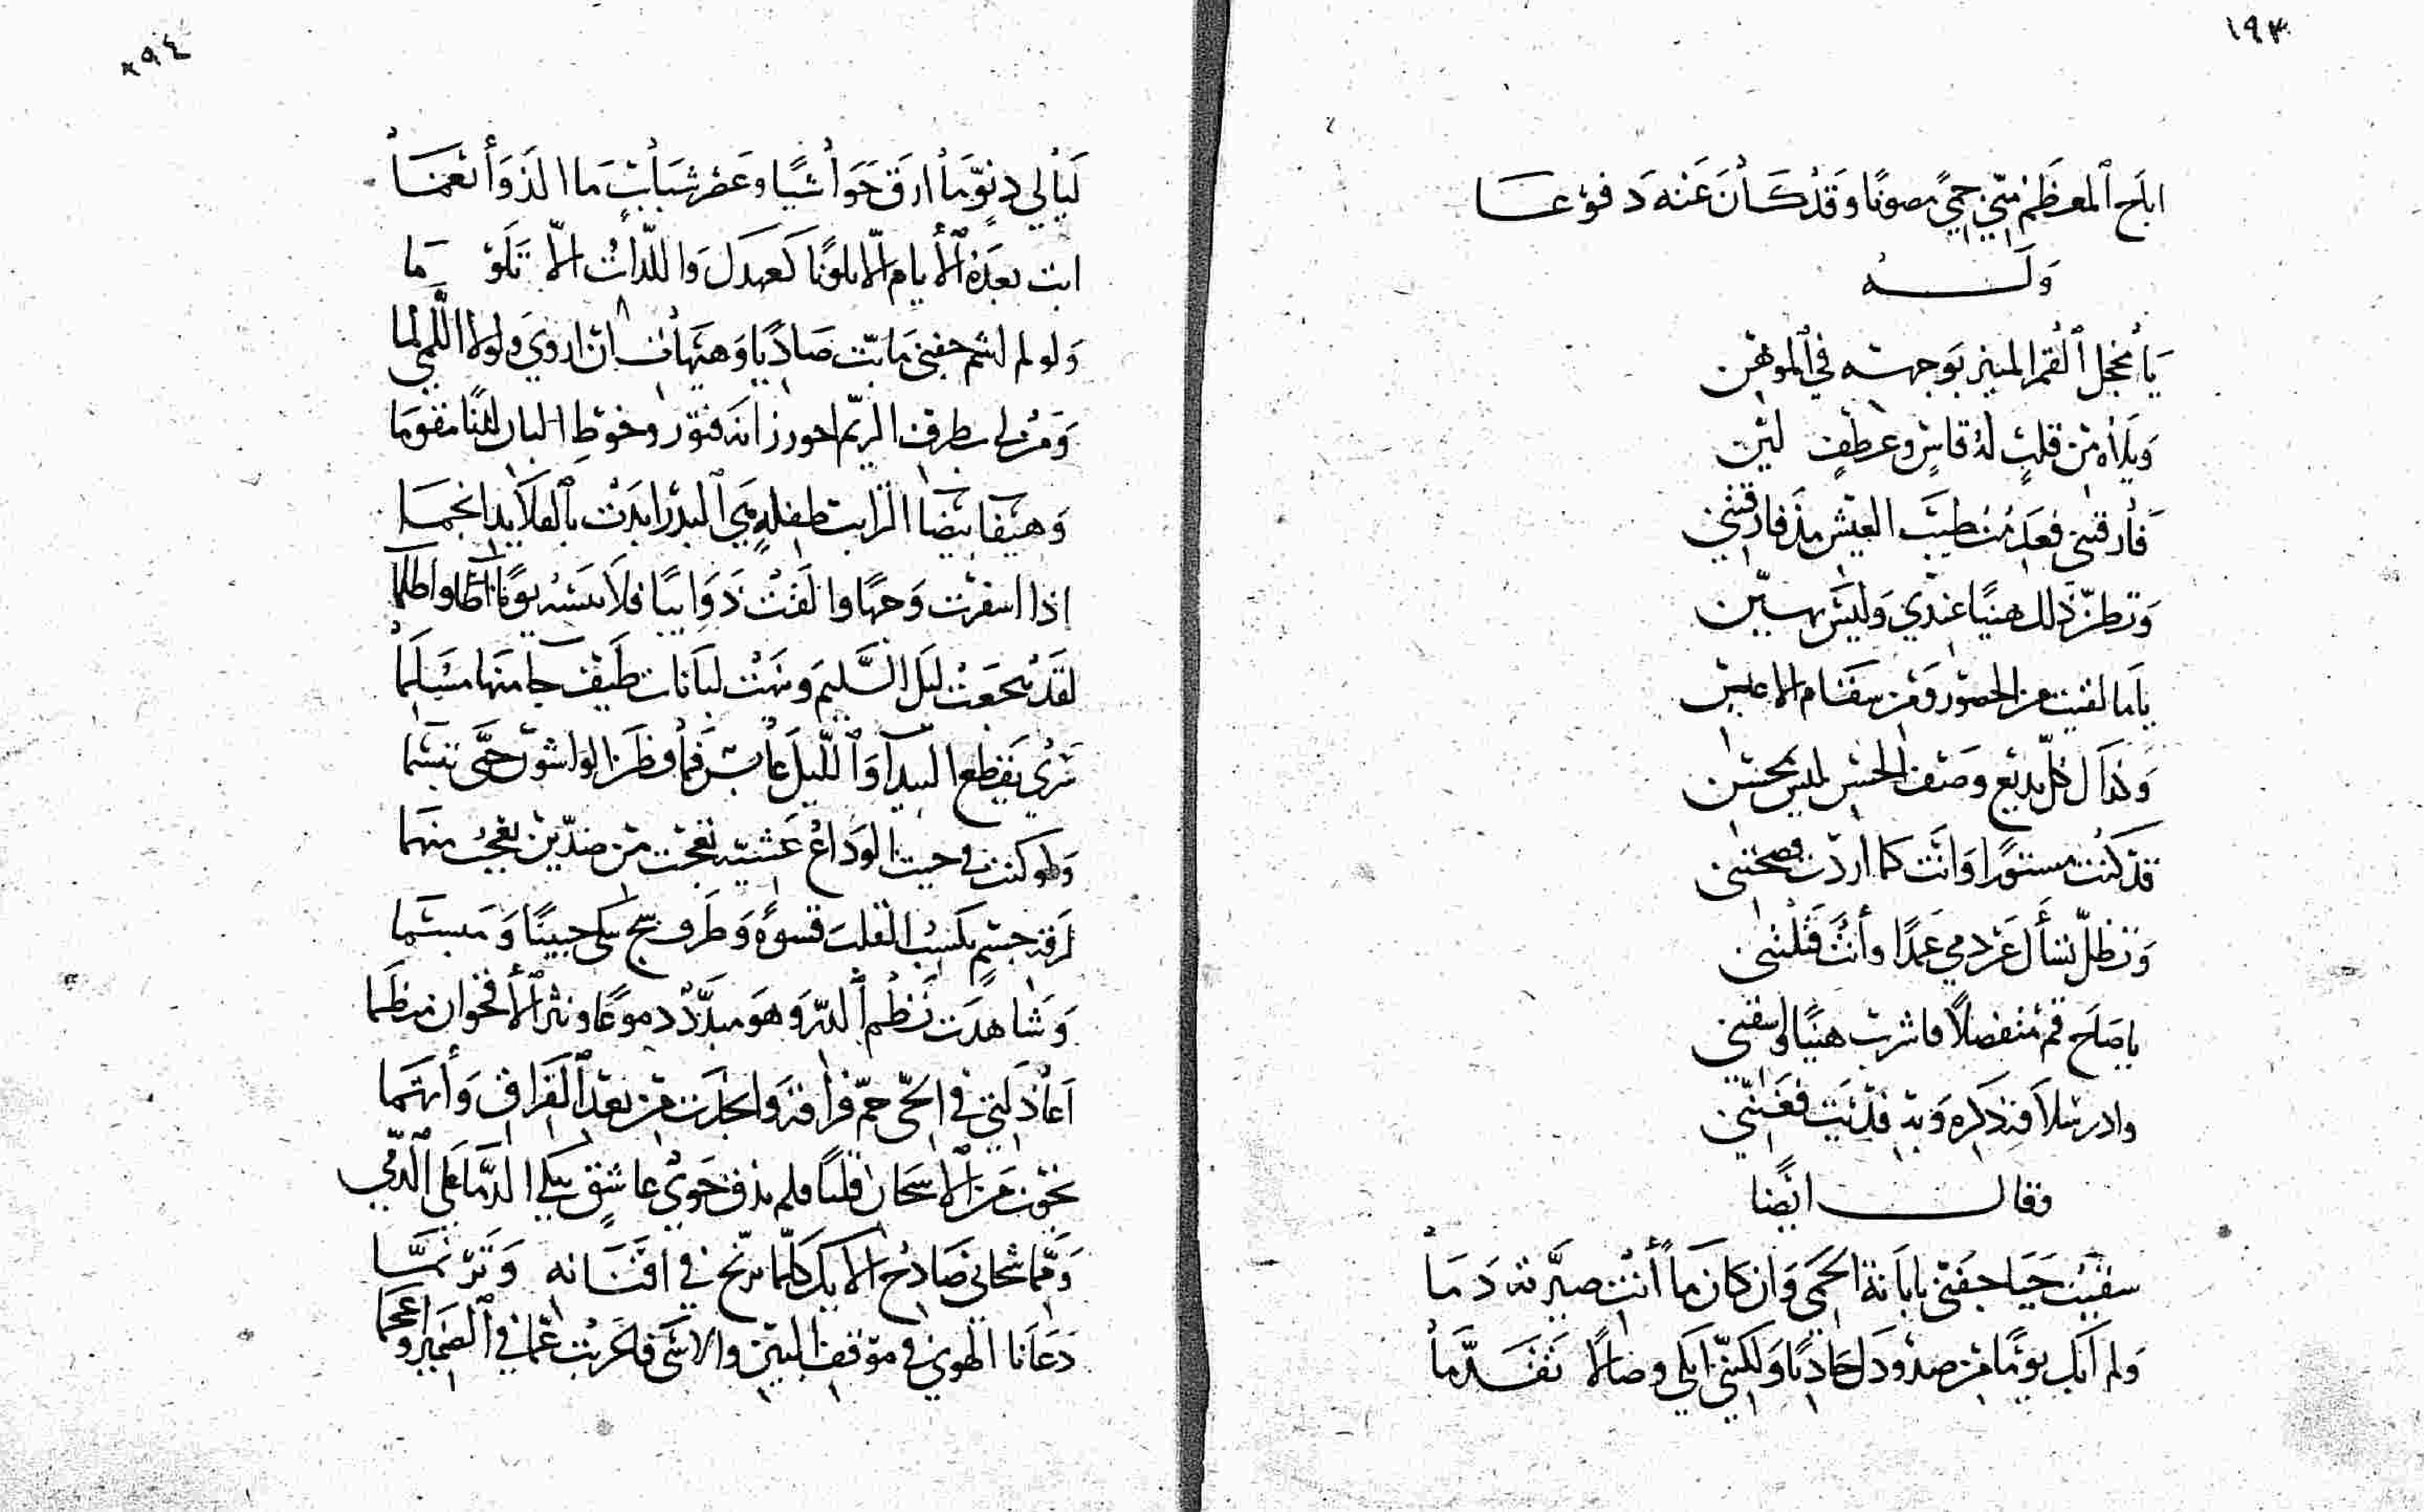 ١٩٣
اباح المعظم مني حمى مصونا وقد كان عنه دفوعا
وله
يا مخجل القمر المنير بوجهه في الموهن
ويلاه من قلب له قاس وعطف لين
فارقتني فعدمت طيب العيش مذ فارقتني
وتظن ذلك هينا عندي وليس بهين
يا ما لقيت من الخصور ومن سقام الاعين
وكذاك كل بديع وصف الحسن ليس بمحسن
قد كنت مستورا وانت كما اردت فضحتني
وتظل تسأل عن دمي عمدا وأنت قتلتني
يا صاح قم متفضلا فاشرب هنيا واسقني
وادر سلافة ذكره وبه فديت فغنني
وقال ايضا
سقيت حيا جفني يا بانة الحمى وان كان ما أنت صيرته دما
ولم ابك يوما من صدودك حاديا ولكنني ابكي وصالا تقدما
١٩٤
ليالي دنو ما ارق حواشيا وعصر شباب ما الذ وأنعما
ابت بعده الأيام الا تلونا كعهدك واللذات الا تلوما
ولو لم لشم جفني ما بت صاديا وهيهات ان اروي ولولا اللمى لما
ومر لي بطرف الريم احور زانه فتور وخوط البان لدنا مقوما
وهيفا بيضا الترايب طفلة هي البدر ابدت بالقلايد انجما
اذا اسفرت وجها والقت ذوايبا فلا تنسه يوما اضا واظلما
لقد هجعت ليل السليم ونبهت لبانات طيف جا منها مسلما
سرى يقطع البيدآ والليل عابس فما فطن الواشون حتى تبسما
ولو كنت في حيث الوداع عشية تعجبت من ضدين يعجب منهما
لرقة جسم يكسب القلب قسوة وطرف سخي بكى جبينا ومبسما
وشاهدت نظم الدر وهو مبدد دموعا ونثر الأقحوان منظما
اعاذلتي في الحي حم فراقه وانجدت من بعد الفراق وأتهما
نجوت من الاشجان قلبا فلم تذق جوى عاشق يبكي الدما على الدمى
ومما شجاني صادح الايك كلما ترنح في افنانه وترنما
دعانا الهوى في موقف البين والاسى فاعربت عما في الضمير واعجما